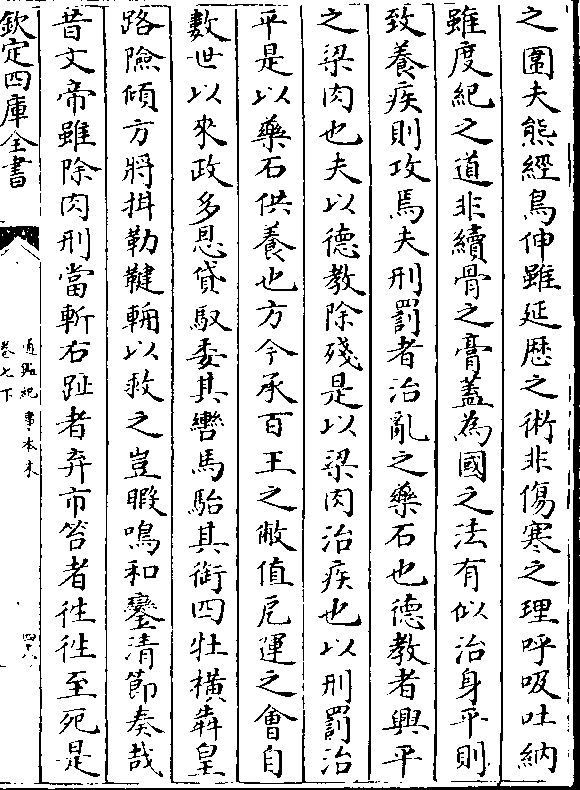 之圍夫熊經鳥伸雖延歷之術非傷寒之理呼吸吐納
雖度紀之道非續骨之膏蓋為國之法有似治身平則
致養疾則攻焉夫刑罰者治亂之藥石也德教者興平
之梁肉也夫以德教除殘是以梁肉治疾也以刑罰治
平是以藥石供養也方今承百王之敝值戹運之會自
數世以來政多恩貸馭委其轡馬駘其銜四牡橫犇皇
路險傾方將拑勒鞬輈以救之豈暇鳴和鑾清節奏哉
昔文帝雖除肉刑當斬右趾者弃市笞者徃徃至死是
欽定四庫全書
通鑑紀事本末
卷七下
四十八